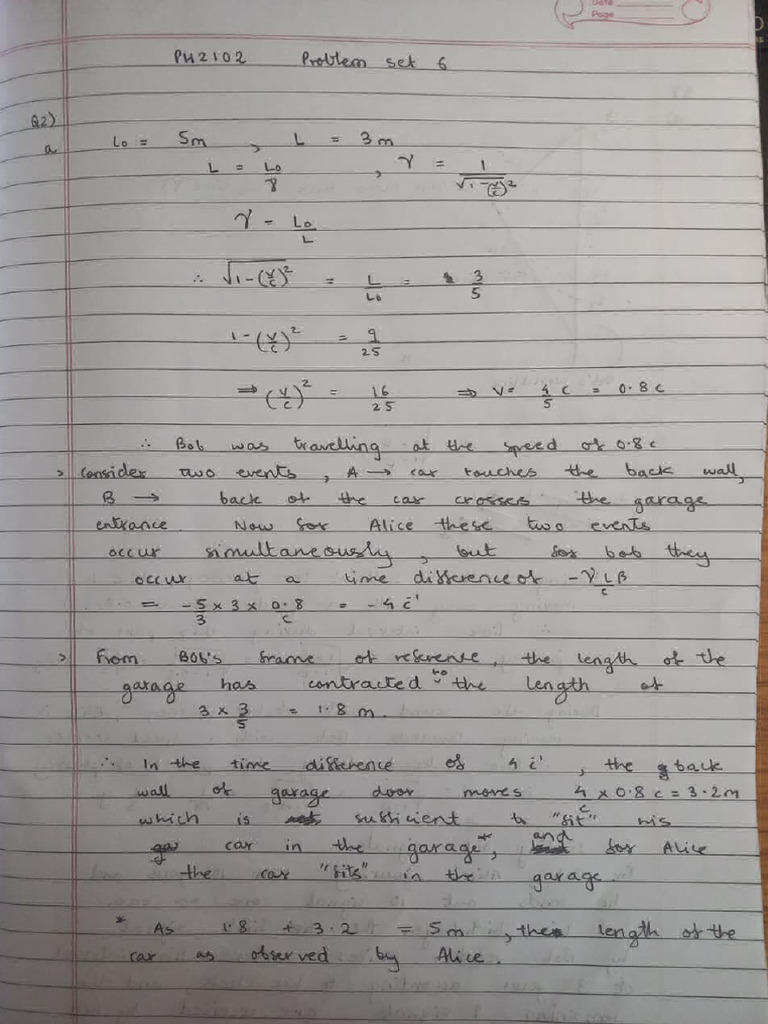 Date
Page
PH2102 Problem set 6
Q2)
a L0 = 5m , L = 3m
L = L0/γ , γ = 1/√1-(v/c)²
γ = L0/L
∴ √1-(v/c)² = L/L0 = 3/5
1-(v/c)² = 9/25
⇒ (v/c)² = 16/25 ⇒ v = 4/5 c = 0.8c
∴ Bob was travelling at the speed of 0.8c
> Consider two events, A → car touches the back wall,
B → back of the car crosses the garage
entrance. Now for Alice these two events
occur simultaneously, but for bob they
occur at a time difference of -γ L/c β
= -5/3 × 3 × 0.8/c = -4 c⁻¹
> From Bob's frame of reference, the length of the
garage has contracted to the length of
3 × 3/5 = 1.8 m.
∴ In the time difference of 4 c⁻¹, the back
wall of garage door moves 4/c × 0.8c = 3.2m
which is sufficient to "fit" his
car in the garage*, and for Alice
the car "fits" in the garage.
* As 1.8 + 3.2 = 5m, the length of the
car as observed by Alice.